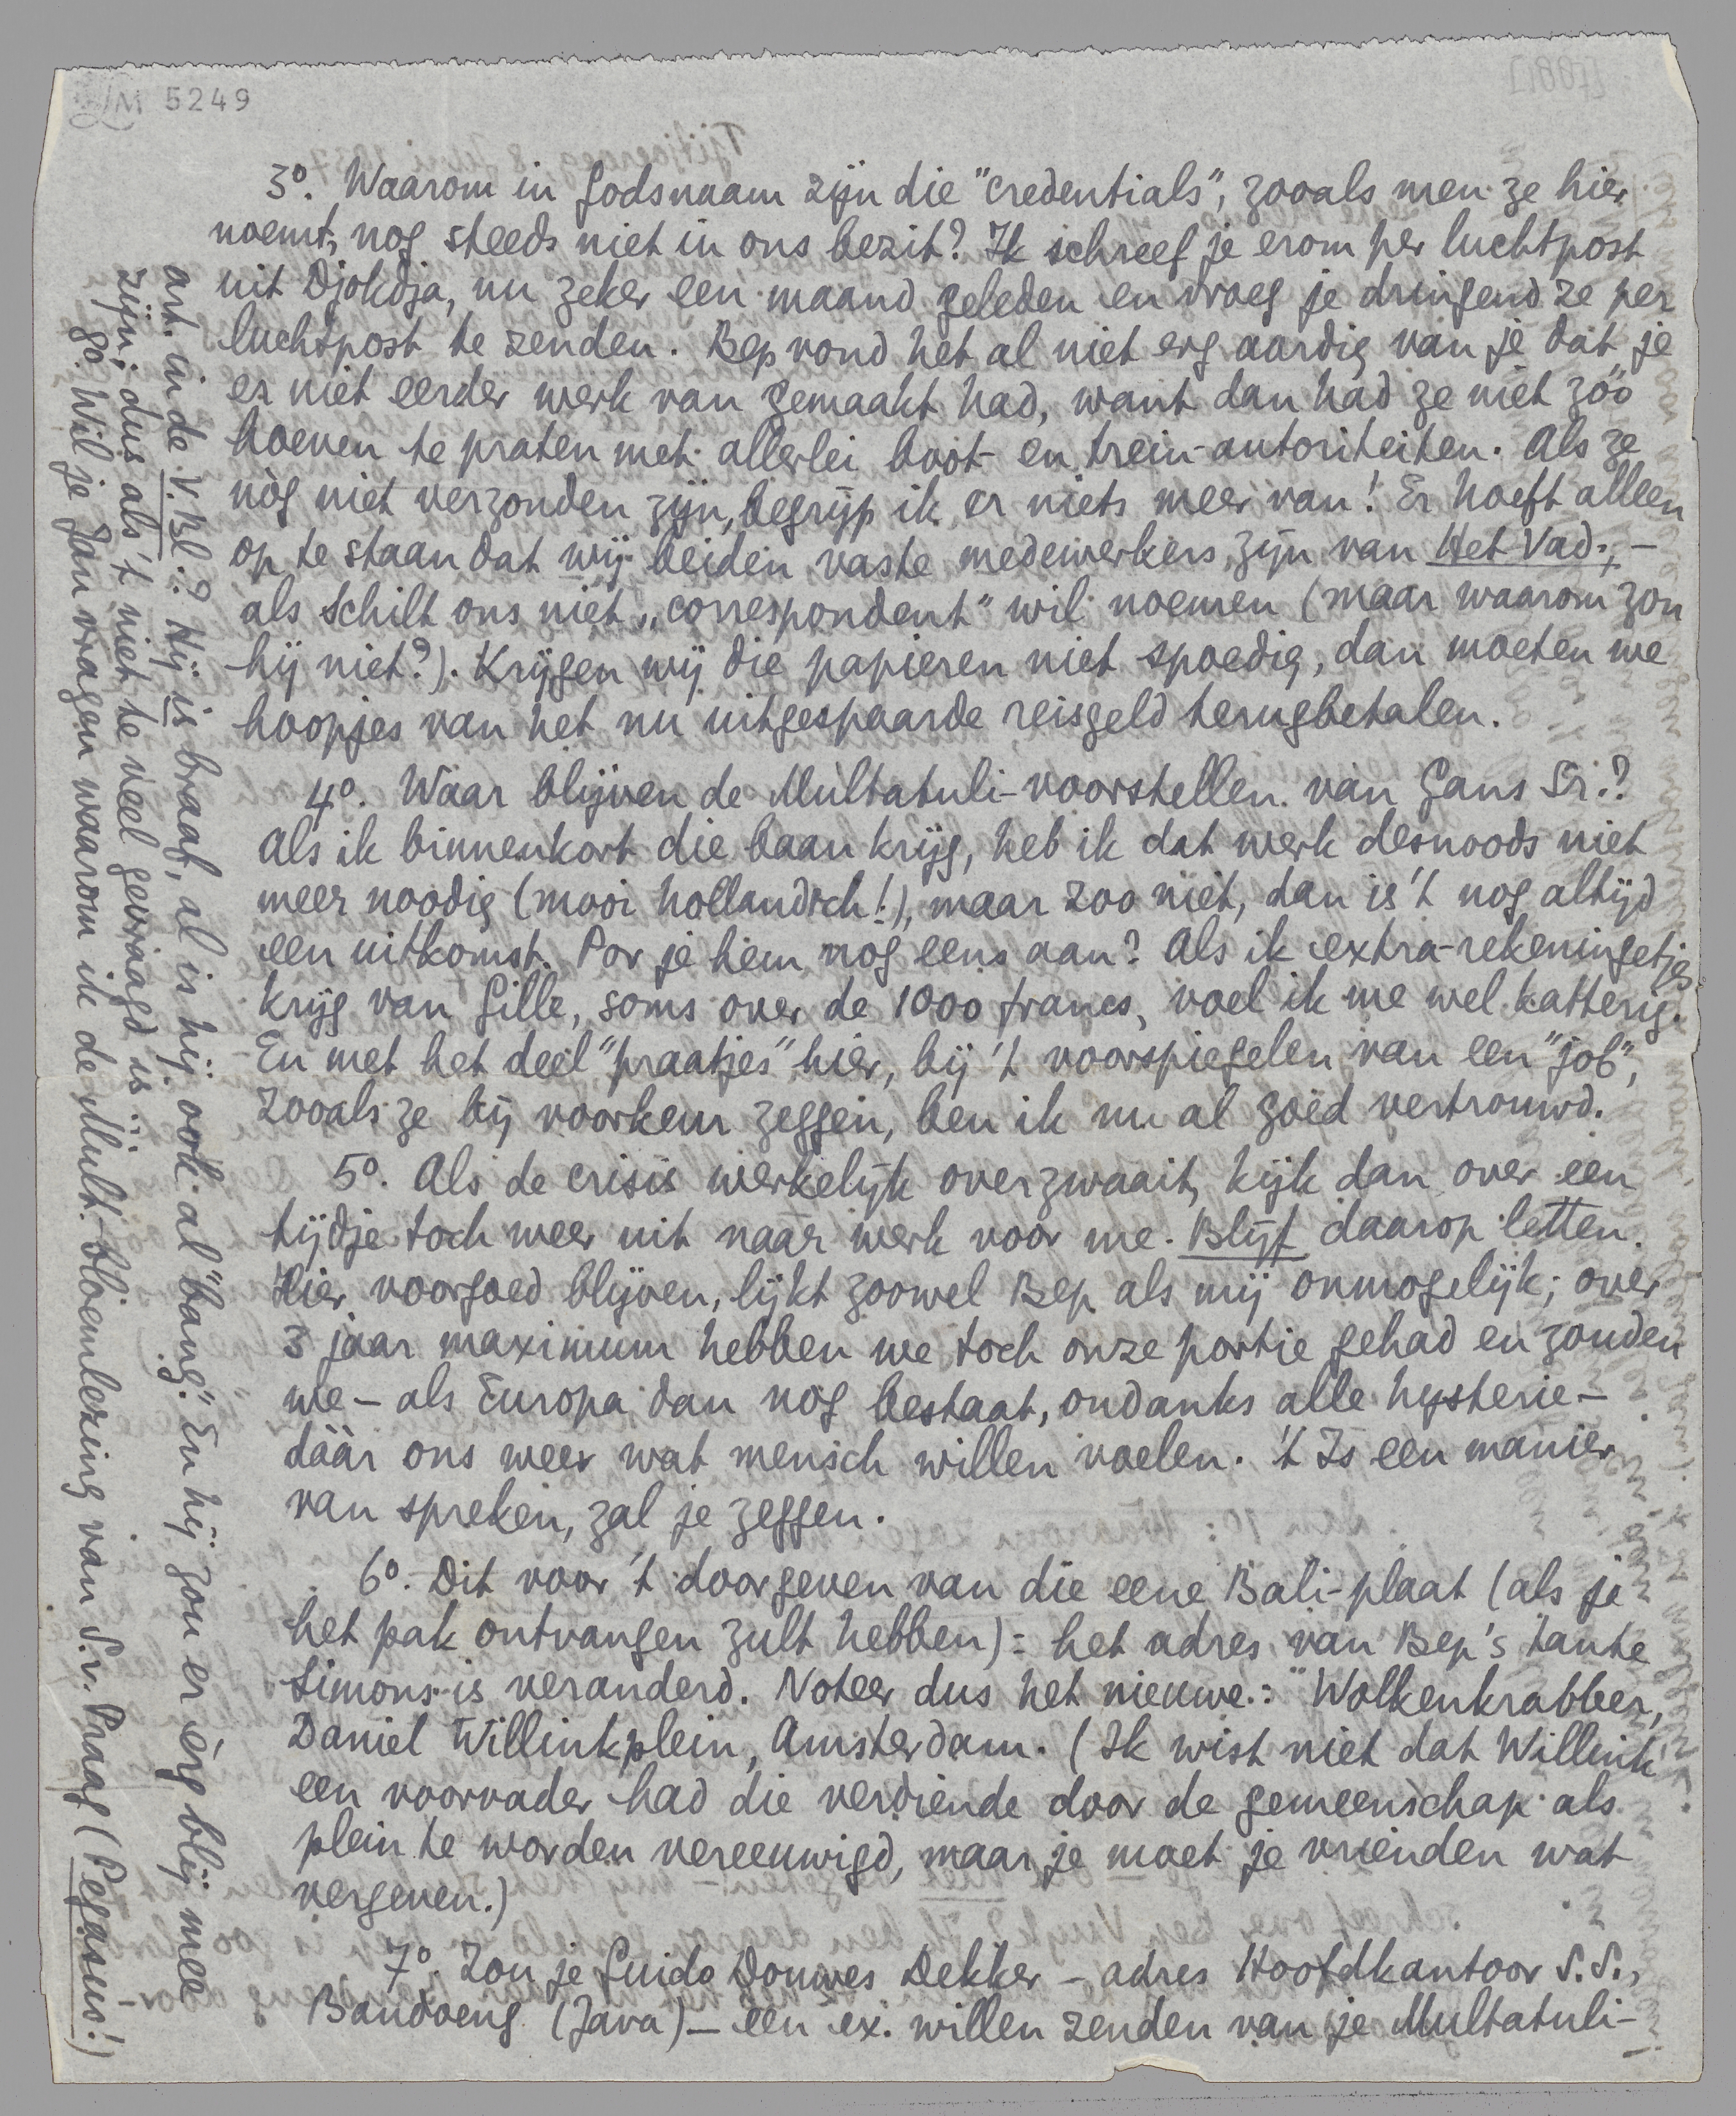 LM 5249
3º. Waarom in godsnaam zijn die "credentials", zooals men ze hier
noemt, nog steeds niet in ons bezit? Ik schreef je erom per luchtpost
uit Djokdja, nu zeker een maand geleden en vroeg je dringend ze per
luchtpost te zenden. Bep vond het al niet erg aardig van je dat je
er niet eerder werk van gemaakt had, want dan had ze niet zóó
hoeven te praten met allerlei boot- en trein-autoriteiten. Als ze
nòg niet verzonden zijn, begrijp ik er niets meer van! Er hoeft alleen
op te staan dat wij beiden vaste medewerkers zijn van Het Vad., –
als Schilt ons niet „correspondent" wil noemen (maar waarom zou
hij niet?). Krijgen wij die papieren niet spoedig, dan moeten we
hoopjes van het nu uitgespaarde reisgeld terugbetalen.
4º. Waar blijven de Multatuli-voorstellen van Gans Sr.?
Als ik binnenkort die baan krijg, heb ik dat werk desnoods niet
meer noodig (mooi hollandsch!), maar zoo niet, dan is 't nog altijd
een uitkomst. Por je hem nog eens aan? Als ik extra-rekeningetjes
krijg van Gille, soms over de 1000 francs, voel ik me wel katterig.
En met het deel "praatjes" hier, bij 't voorspiegelen van een "job",
zooals ze bij voorkeur zeggen, ben ik nu al goed vertrouwd.
5º. Als de crisis werkelijk overzwaait, kijk dan over een
tijdje toch weer uit naar werk voor me. Blijf daarop letten.
Hier voorgoed blijven, lijkt zoowel Bep als mij onmogelijk; over
3 jaar maximum hebben we toch onze portie gehad en zouden
we – als Europa dan nog bestaat, ondanks alle hysterie –
dáár ons weer wat mensch willen voelen. 't Is een manier
van spreken, zal je zeggen.
6º. Dit voor 't doorgeven van die eene Bali-plaat (als je
het pak ontvangen zult hebben): het adres van Bep's tante
Simons is veranderd. Noteer dus het nieuwe: "Wolkenkrabber,
Daniel Willinkplein, Amsterdam. (Ik wist niet dat Willink
een voorvader had die verdiende door de gemeenschap als
plein te worden vereeuwigd, maar je moet je vrienden wat
vergeven.)
7º. Zou je Guido Douwes Dekker – adres Hoofdkantoor S.S.,
Bandoeng (Java) – een ex. willen zenden van je Multatuli-
art. in de V.Bl.? Hij is braaf, al is hij ook al "bang". En hij zou er èrg blij mee
zijn; dus als 't niet te veel gevraagd is...
8º. Wil je Jan vragen waarom ik de Mult.-bloemlezing van S.v. Praag (Pegasus!)